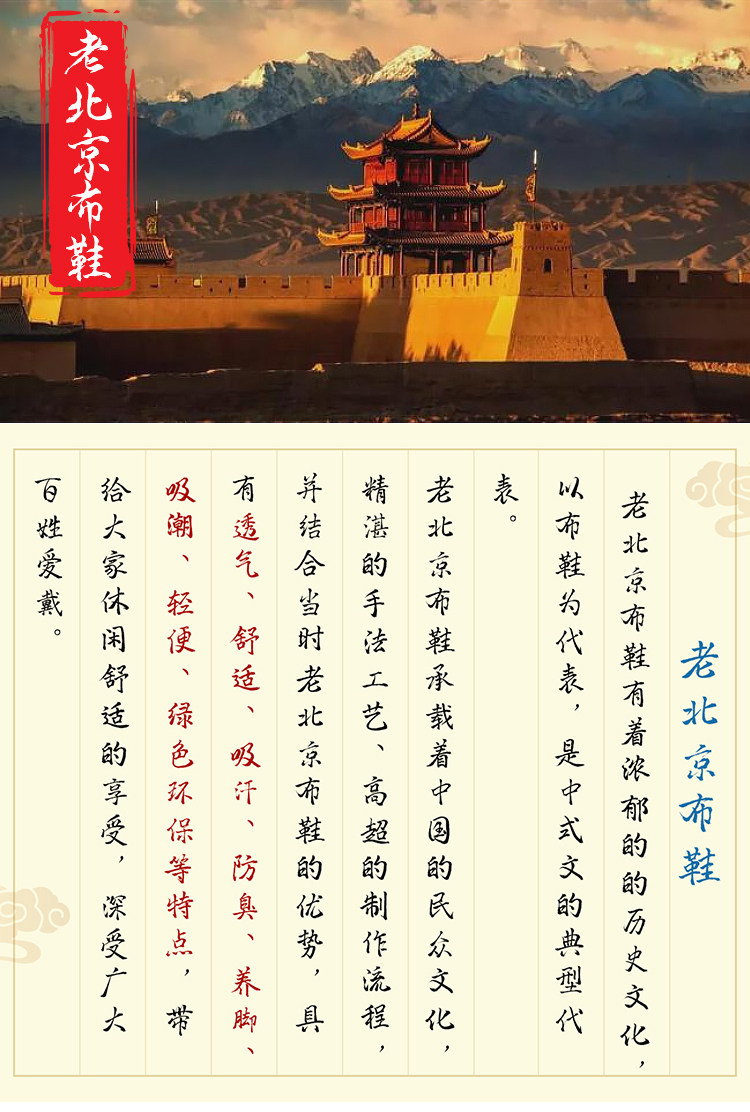 老北京布鞋
老北京布鞋
老北京布鞋有着浓郁的的历史文化，
以布鞋为代表，是中式文的典型代
表。
老北京布鞋承载着中国的民众文化，
精湛的手法工艺、高超的制作流程，
并结合当时老北京布鞋的优势，具
有透气、舒适、吸汗、防臭、养脚、
吸潮、轻便、绿色环保等特点，带
给大家休闲舒适的享受，深受广大
百姓爱戴。